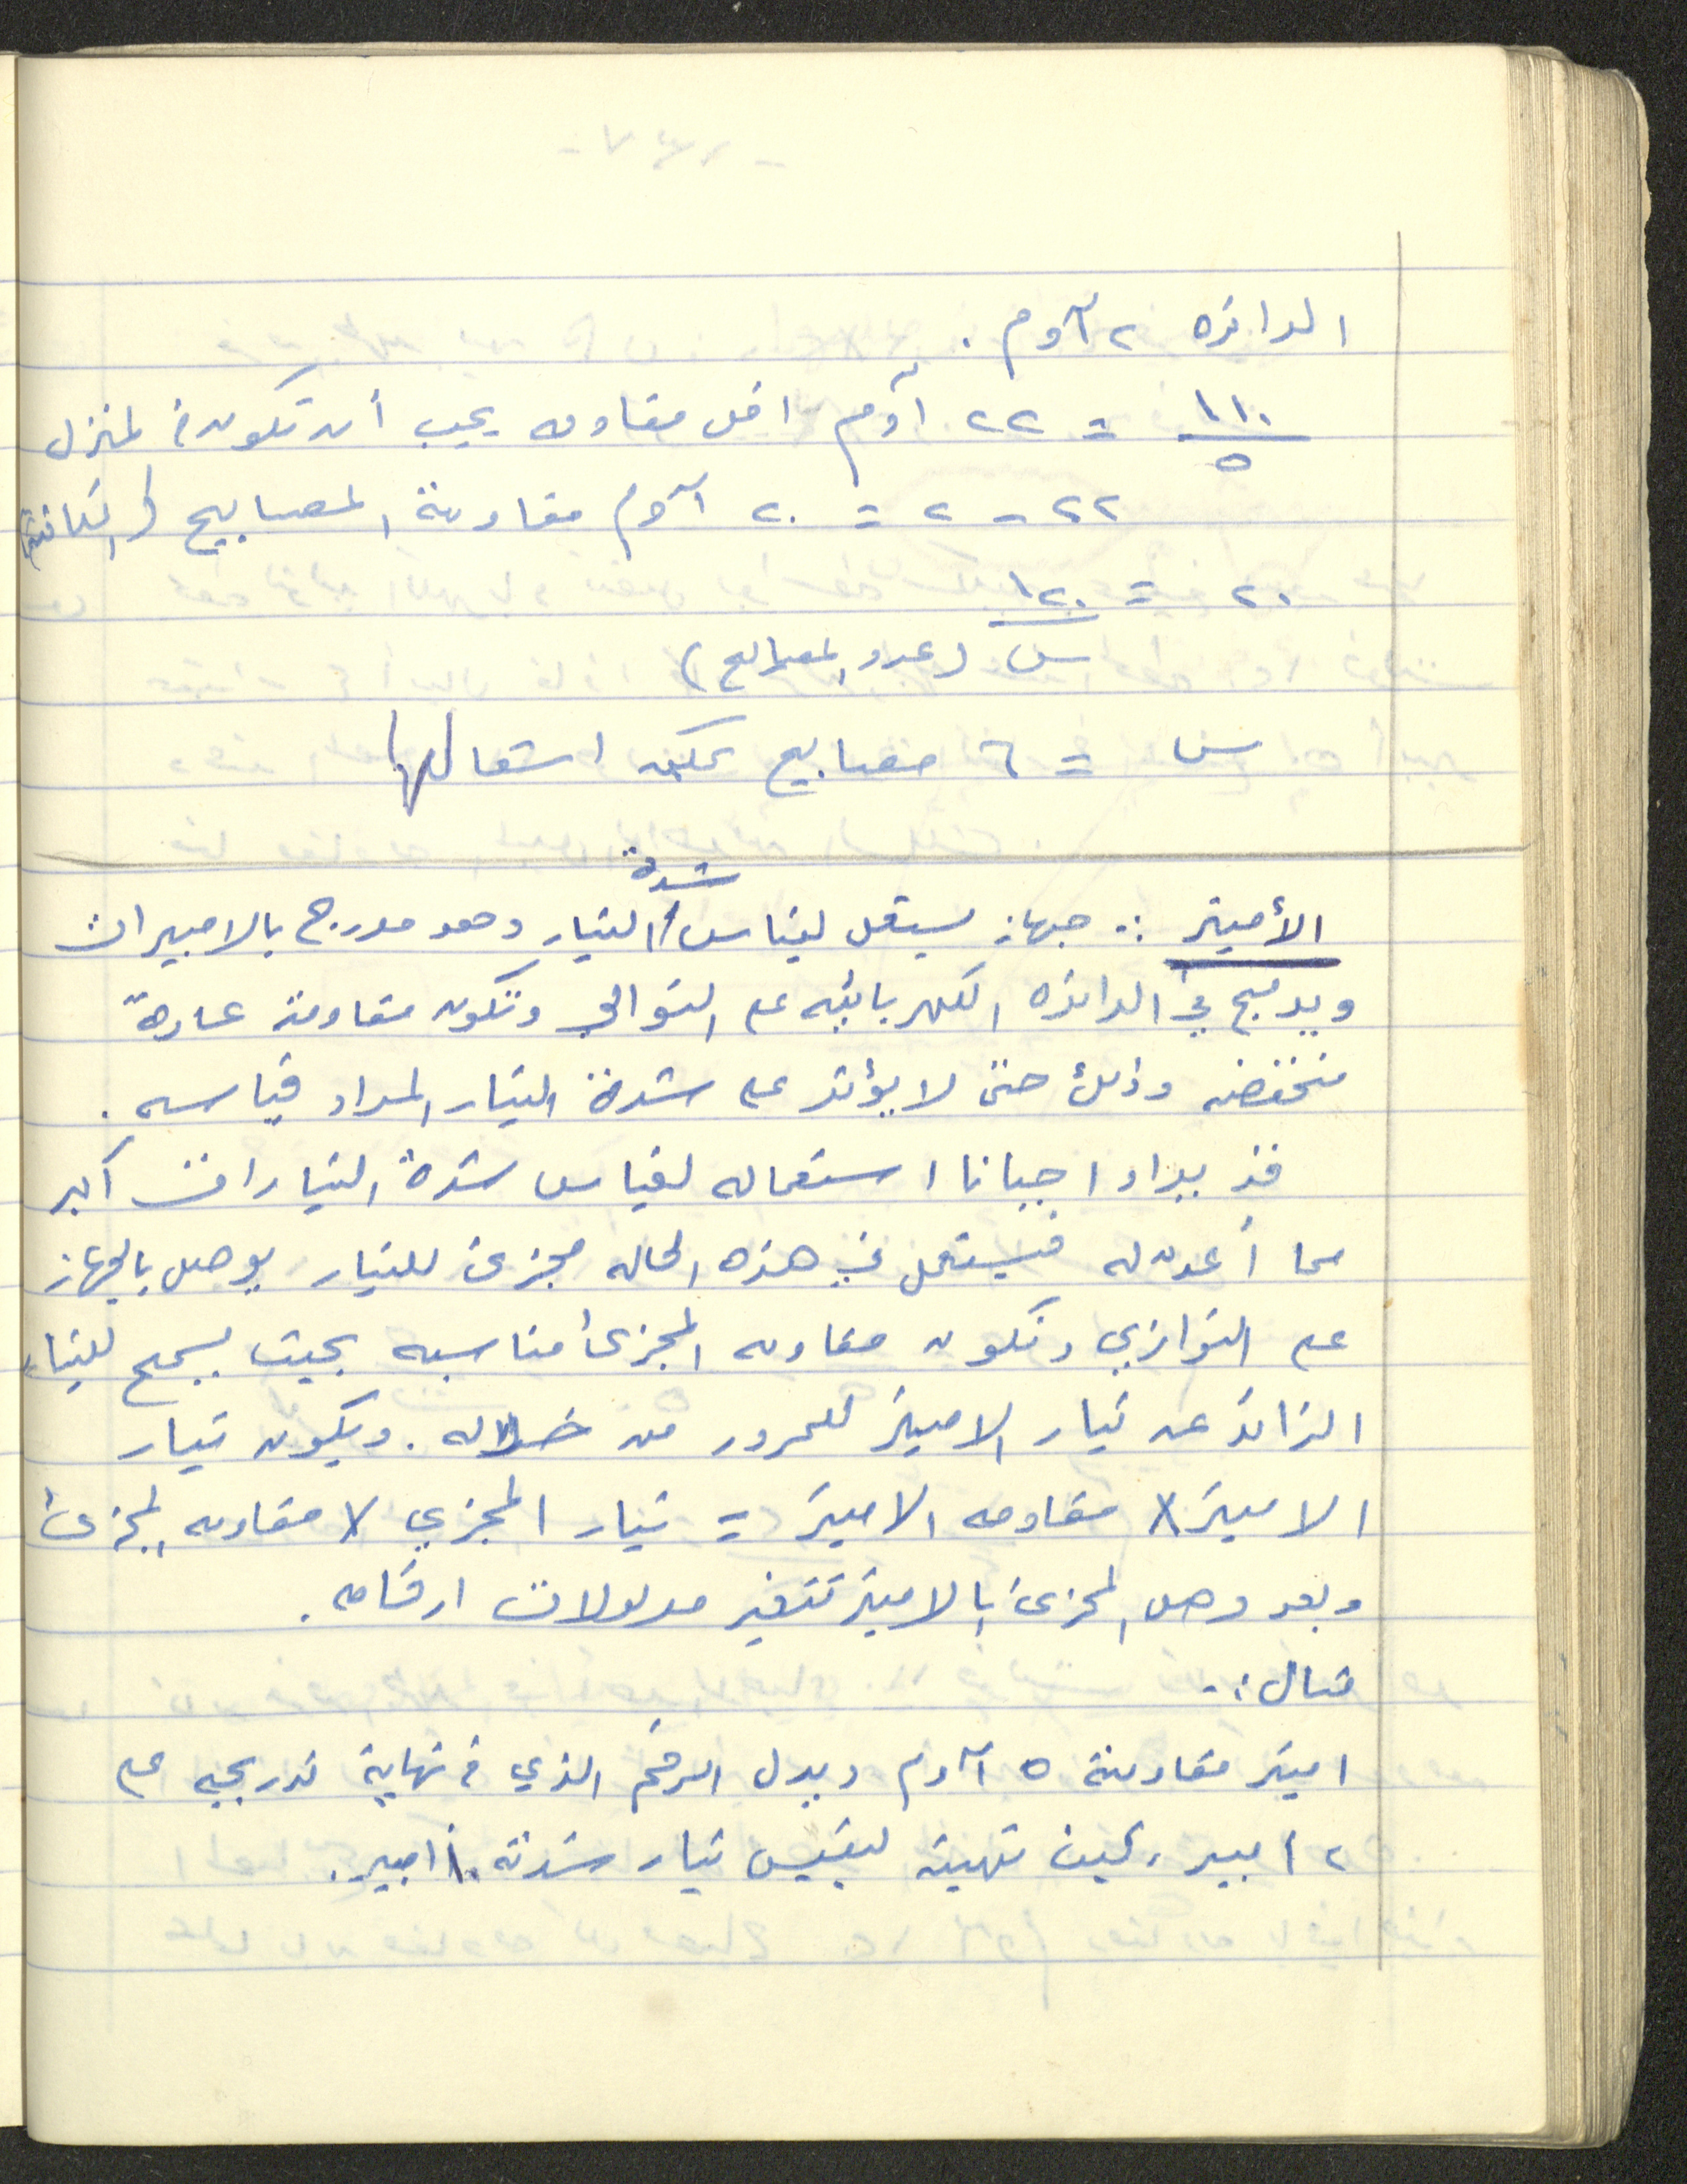 الدائره ٢ آوم .
١١٠/٥ = ٢٢ آوم اقل مقاومه يجب أن تكون في المنزل
٢٢ - ٢ = ٢٠ آوم مقاومة المصابيح (المكافئة)
٢٠ = ١٢٠/س (عدد المصابيح)
س = ٦ مصابيح يمكن اشعالها
الأميتر :- جهاز يستعمل لقياس شدة التيار وهو مدرج بالامبيرات
ويدمج في الدائره الكهربائيه على التوالي وتكون مقاومته عادة
منخفضه وذلك حتى لا يؤثر على شدة التيار المراد قياسه .
قد يراد احيانا استعماله لقياس شدة التيارات اكبر
مما أعد له فيستعمل في هذه الحاله مجزئ للتيار يوصل بالجهاز
على التوازي وتكون مقاومه المجزئ مناسبه بحيث يسمح للتيار
الزائد عن تيار الاميتر للمرور من خلاله . ويكون تيار
الاميتر X مقاومه الاميتر = تيار المجزئ X مقاومه المجزئ
وبعد وصل المجزئ بالاميتر تتغير مدلولات ارقامه .
مثال :-
اميتر مقاومته ٥ آوم ويدل الرقم الذي في نهاية تدريجيه على
٢ امبير ، كيف تهيئه ليقيس تيار شدته ١٠ امبير .